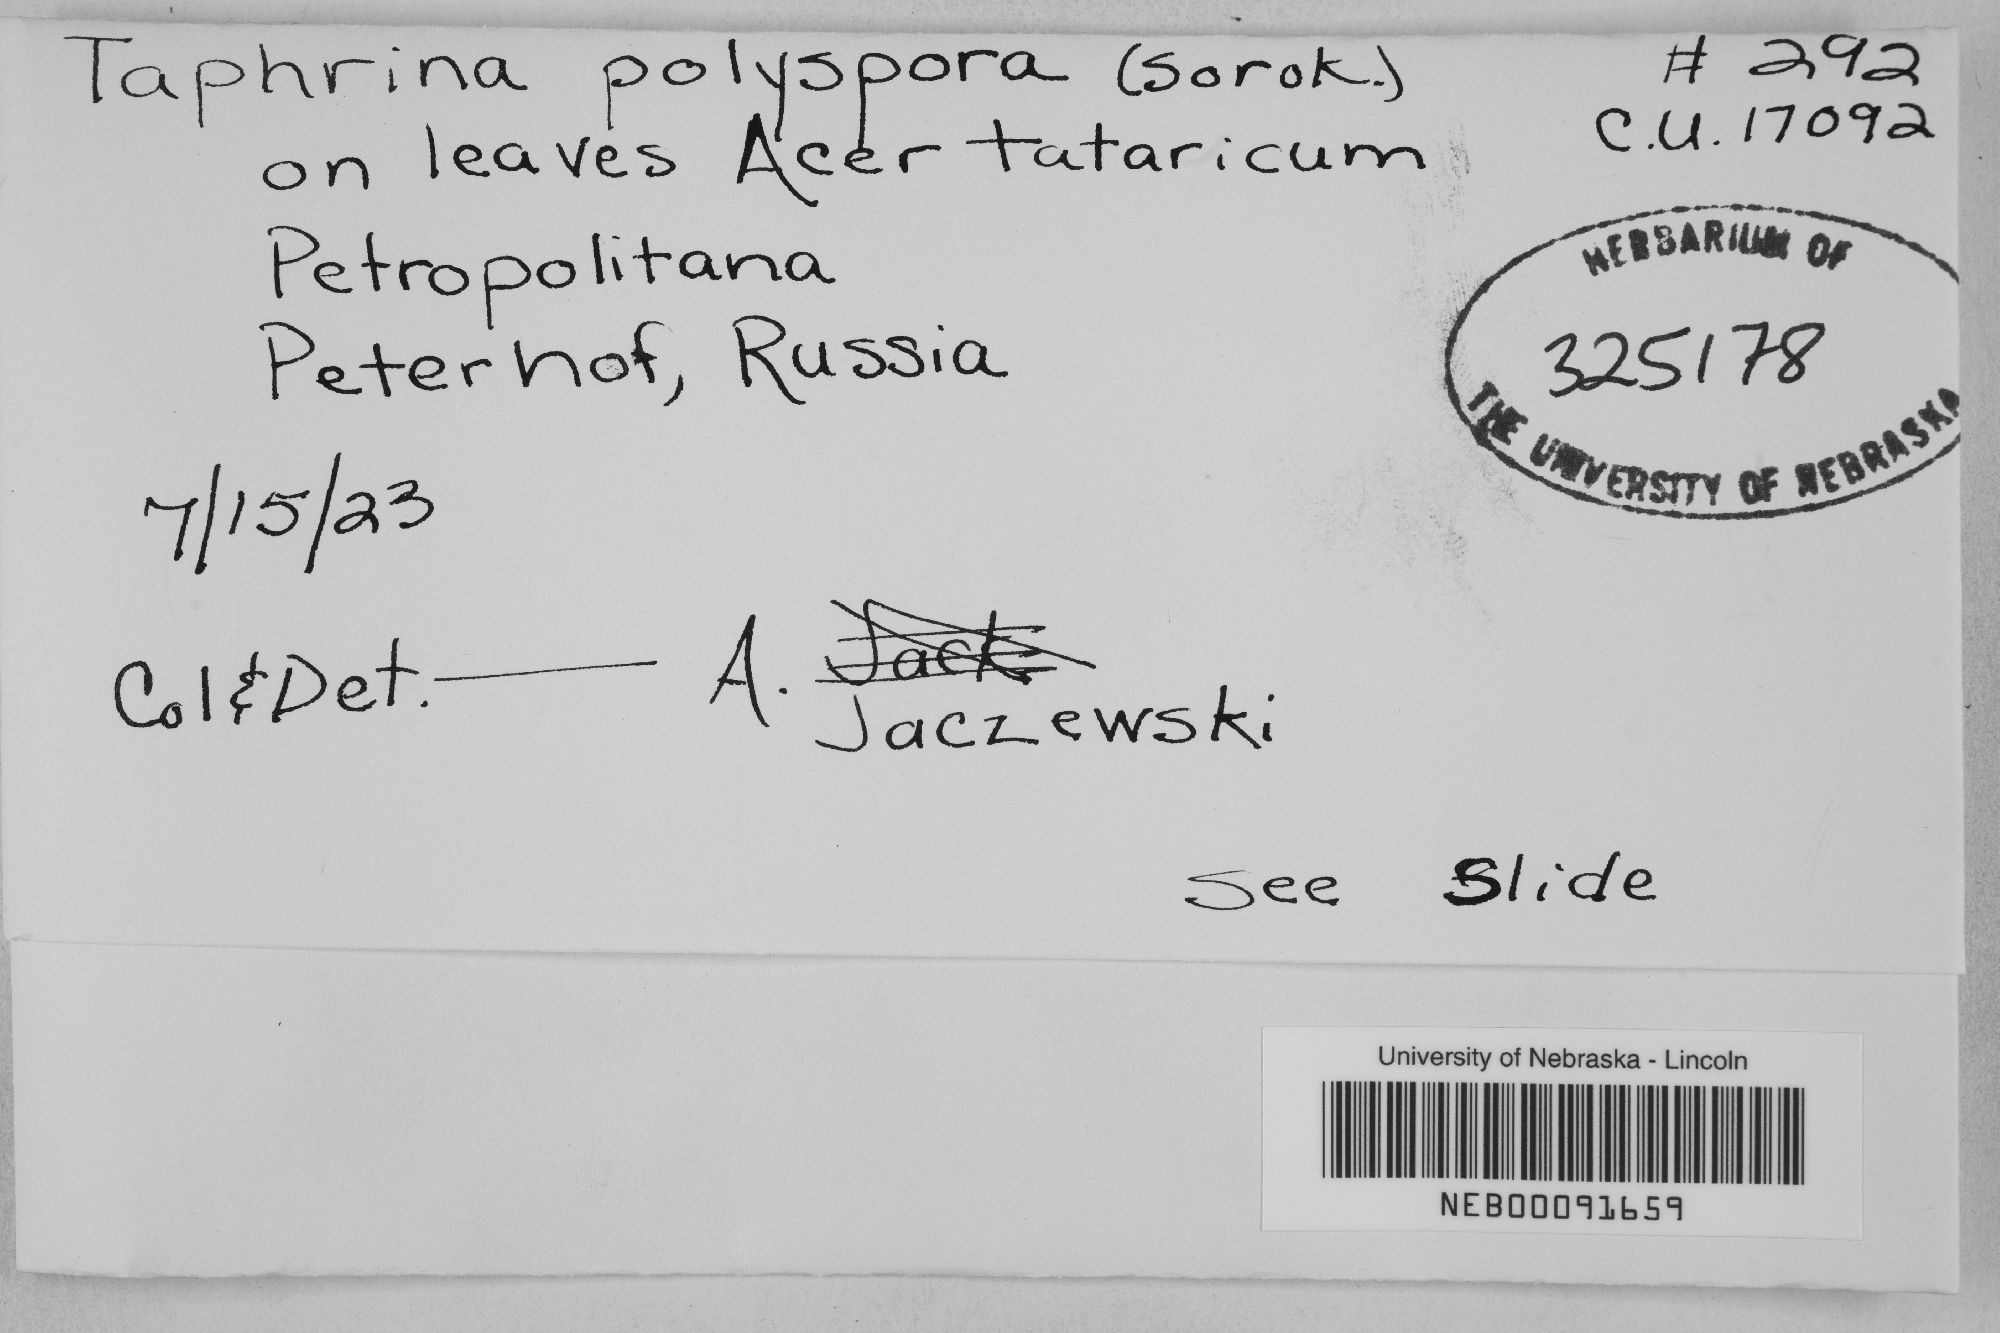 Taphrina polyspora (Sorok.)
# 292
C.U. 17092
on leaves Acer tataricum
Petropolitana
Peterhof, Russia
HERBARIUM OF
325178
THE UNIVERSITY OF NEBRASKA
7/15/23
Col & Det. — A. Jack
Jaczewski
see Slide
University of Nebraska - Lincoln
NEB00091659